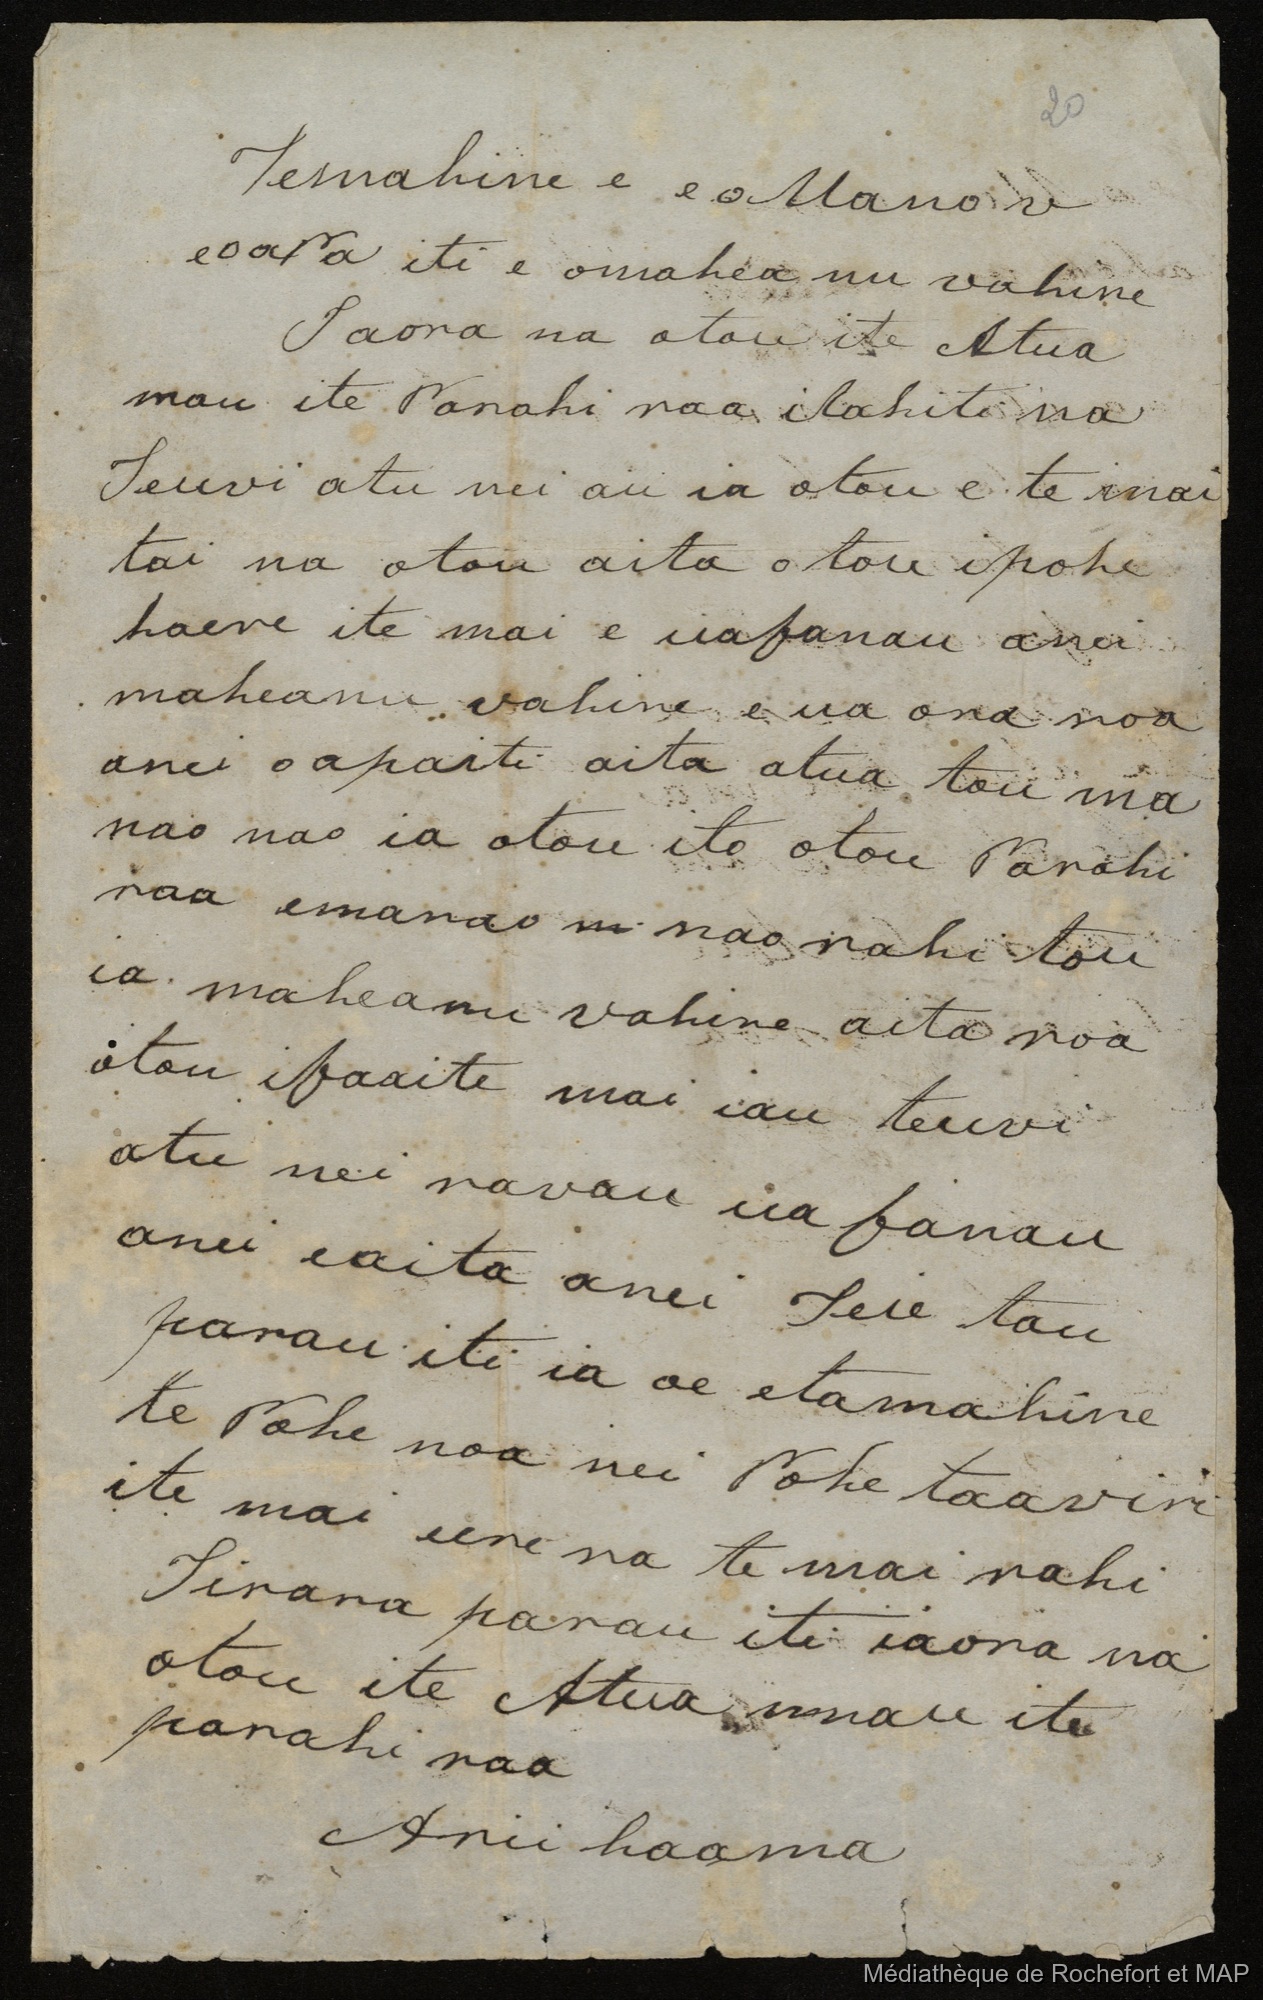 20
Temahine e e o Mano v
e o a Pa iti e omahea nu vahine
Iaora na otou ite Atua
mau ite Parahi raa itahiti na
Teuvi atu nei au ia otou e te mai
tai na otou aita otou ipohe
haere ite mai e uafanau anei
maheanu vahine e ua ora noa
anei o apaiti aita atua tou ma
nao nao ia otou ito otou Parahi
raa emanao nao rahi tou
ia maheanu vahine aita roa
otou ifaaite mai iau teuvi
atu nei ravau ua fanau
anei eaita anei Teie tau
parau iti ia oe etamahine
te Pohe noa nei Pohe taaviri
ite mai ure na te mai rahi
Tirara parau iti iaora na
otou ite Atua mau ite
parahi raa
Arii haama
Médiathèque de Rochefort et MAP